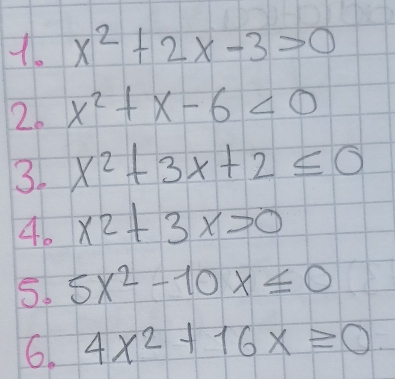 1. x² + 2x - 3 > 0
2. x² + x - 6 < 0
3. x² + 3x + 2 ≤ 0
4. x² + 3x > 0
5. 5x² - 10x ≤ 0
6. 4x² + 16x ≥ 0